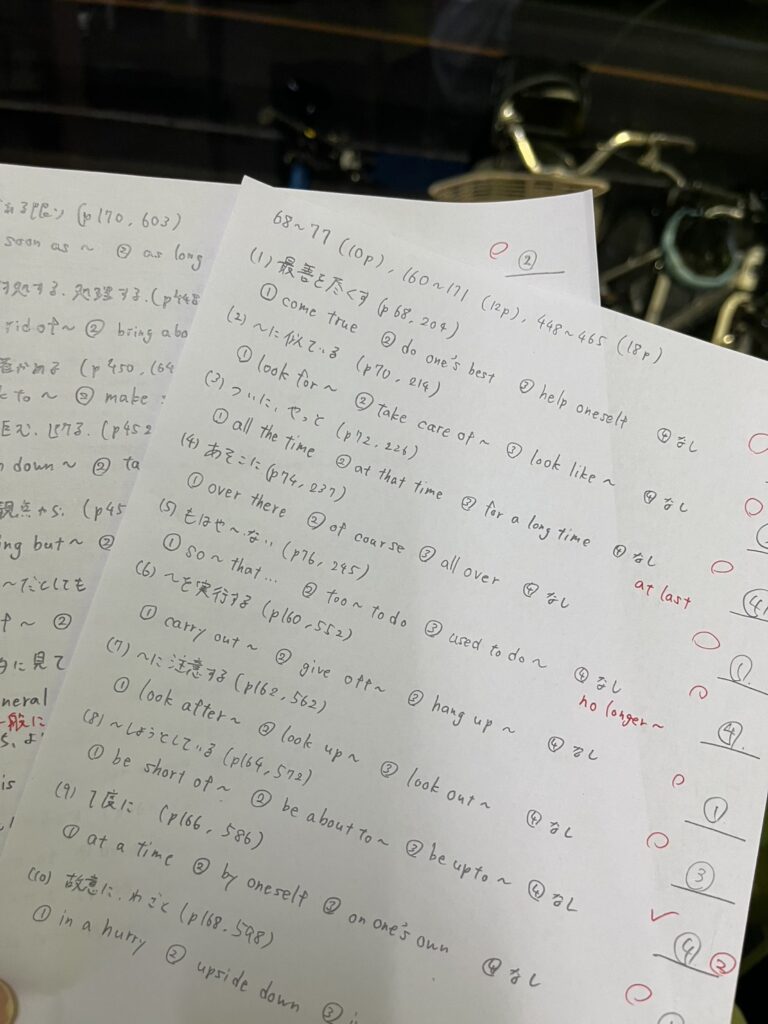 れる限り (p170, 603)
soon as ~ ② as long
処する、処理する (p448
rid of ~ ② bring abo
(p450, 164
k to ~ ② make
(p452
n down ~ ② ta
観点から (p45
ing but ~ ②
~だとしても
f ~ ②
的に見て
neral
一般に
is
68~77 (10p), 160~171 (12p), 448~465 (18p)
②
(1) 最善を尽くす (p68, 204)
① come true ② do one's best ③ help oneself ④ なし
(2) ~に似ている (p70, 214)
① look for ~ ② take care of ~ ③ look like ~ ④ なし
(3) ついに、やっと (p72, 226)
① all the time ② at that time ③ for a long time ④ なし
at last
④
(4) あそこに (p74, 237)
① over there ② of course ③ all over ④ なし
①
(5) もはや~ない (p76, 245)
① so ~ that... ② too ~ to do ③ used to do ~ ④ なし
no longer ~
④
(6) ~を実行する (p160, 552)
① carry out ~ ② give off ~ ③ hang up ~ ④ なし
①
(7) ~に注意する (p162, 562)
① look after ~ ② look up ~ ③ look out ~ ④ なし
③
(8) ~しようとしている (p164, 572)
① be short of ~ ② be about to ~ ③ be up to ~ ④ なし
④ ②
(9) 1度に (p166, 586)
① at a time ② by oneself ③ on one's own ④ なし
(10) 故意に、わざと (p168, 598)
① in a hurry ② upside down ③